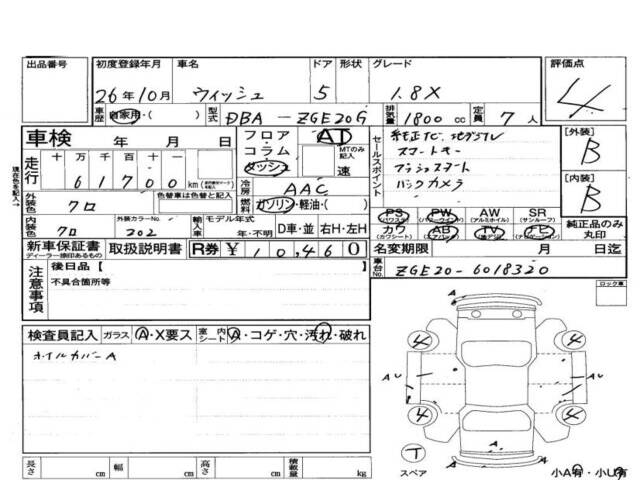 出品番号 初度登録年月 車名 ドア 形状 グレード 評価点
26年10月 ウィッシュ 5 1.8X 4
車歴 自家用・( ) 型式 DBA-ZGE20G 排気量 1800 cc 定員 7 人
車検 年 月 日
フロア・コラム・ダッシュ AT MTのみ記入 速
走行 十 万 千 百 十 一
61700 km
冷房 AAC
燃料 ガソリン・軽油・( )
外装色 クロ 色替車は色替と記入
内装色 クロ 外装カラーNo. 202 輸入車 モデル年式 年・不明 D車・並 右H・左H
セールスポイント
純正ナビ 地デジフル
スマートキー
プッシュスタート
バックカメラ
[外装] B
[内装] B
PS (パワステ) PW (パワーウィンド) AW (アルミホイル) SR (サンルーフ)
カワ (カワシート) AB (エアバック) TV (地デジ) ナビ (ナビゲーション)
純正品のみ丸印
新車保証書 ディーラー捺印あるもの 取扱説明書 R券 ¥ 10,460
名変期限 月 日迄
車台No. ZGE20-6018320
注意事項
後日品【
不具合箇所等
ロック車
検査員記入 ガラス A・X要ス 室内シート A・コゲ・穴・汚れ・破れ
ホイルカバーA
A
4 4
AU AU
4 4
A
T
スペア
小A有・小U有
長さ cm 幅 cm 高さ cm 積載量 kg
現在色を記入→